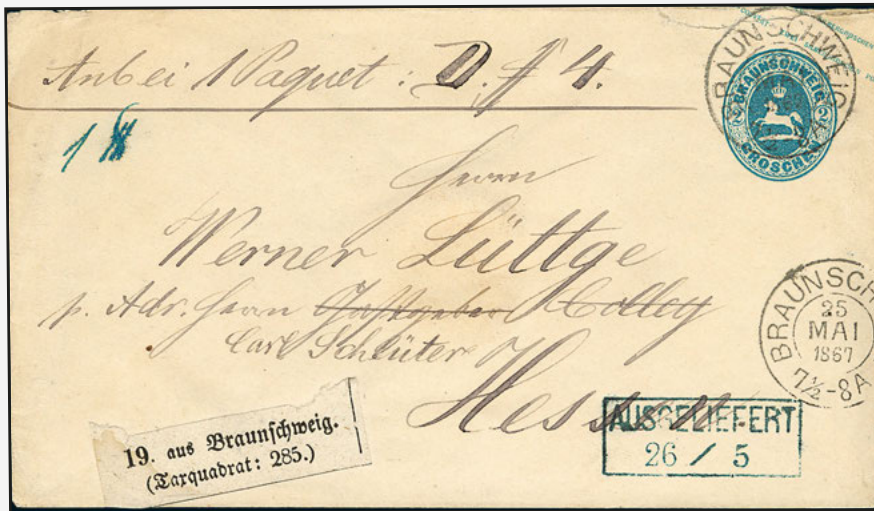 Anbei 1 Paquet: D. # 4.
BRAUNSCHWEIG
BRAUNSCHWEIG
2 2
GROSCHEN
1
Herrn
Werner Lüttge
p. Adr. Herrn Gastgeber Colley
Carl Schlüter
Hessen.
BRAUNSCH
25
MAI
1867
7½-8A
AUSGELIEFERT
26 / 5
19. aus Braunschweig.
(Taxquadrat: 285.)